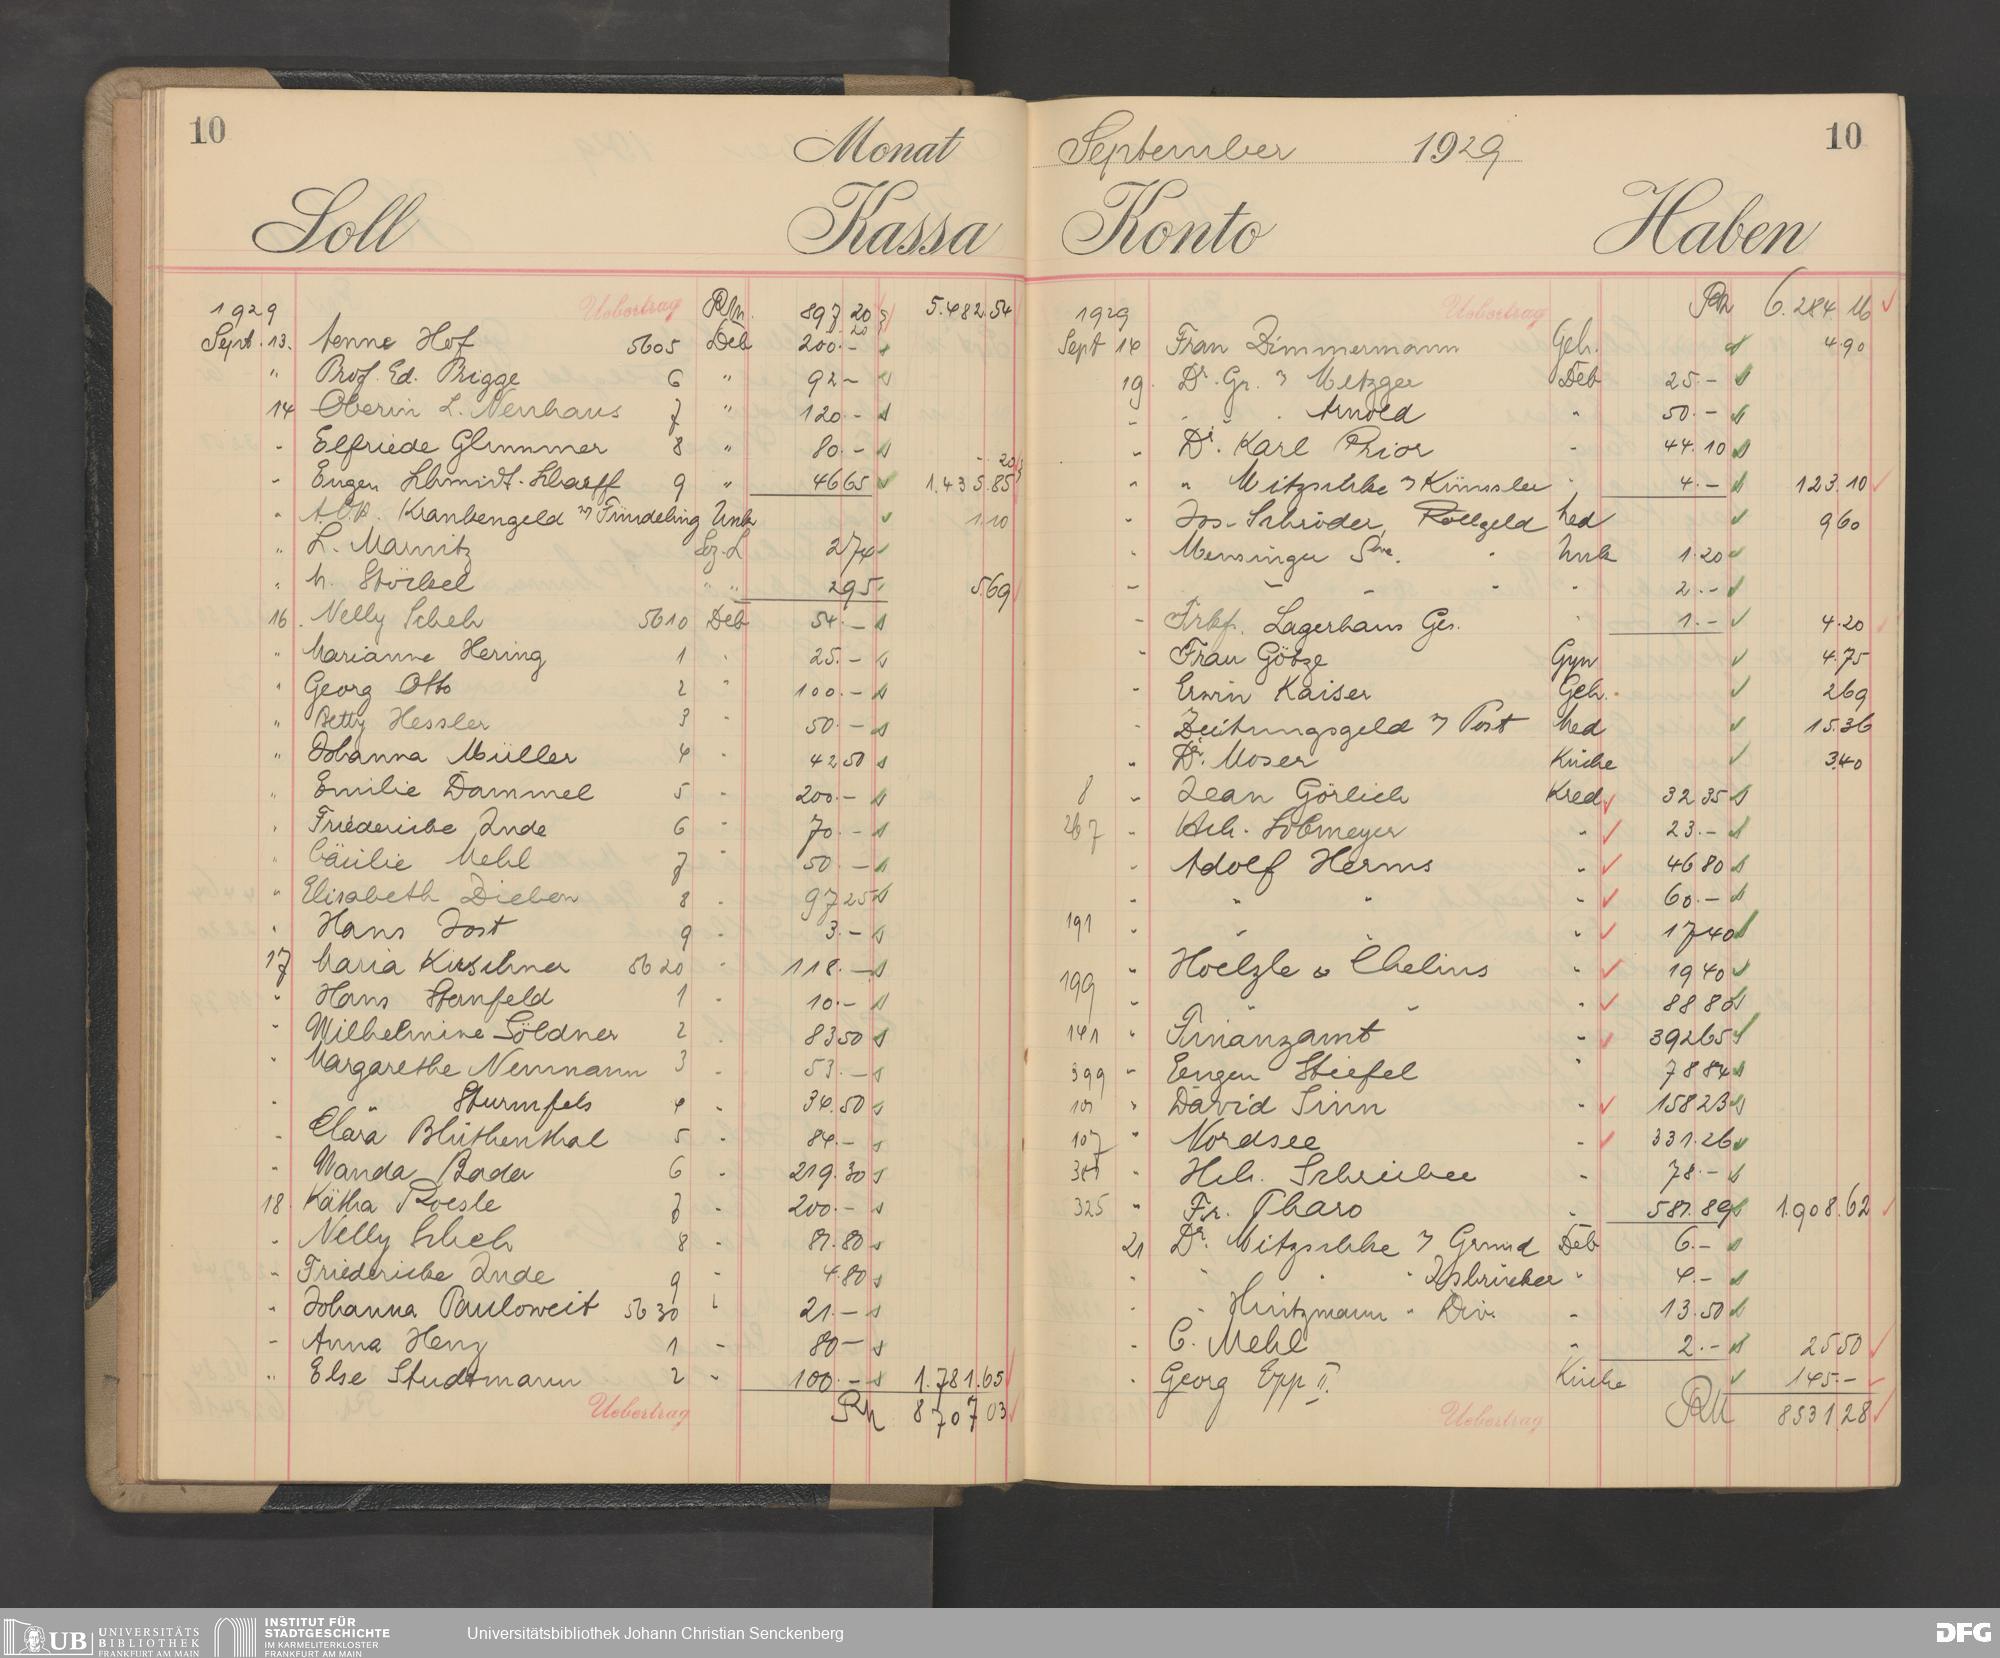 10
Monat
Soll Kassa
1929 Uebertrag Rm. 897 20 5.482 54
Sept. 13. Aenne Hof 5605 Deb 200.—
" Prof. Ed. Brigge 6 " 92 —
14 Oberin L. Neuhaus 7 " 120.—
" Elfriede Glimmer 8 " 80.—
- 20
" Eugen Schmidt-Scharff 9 " 46 65 1.435.85
" A.O.K. Krankengeld Fündeling Unk 1.10
" L. Marnitz Soz. L 2 74
" M. Störkel " " 2 95 5.69
16. Nelly Scheh 5610 Deb 54.—
" Marianne Hering 1 " 25.—
" Georg Otto 2 " 100.—
" Betty Hessler 3 " 50.—
" Johanna Müller 4 " 42 50
" Emilie Dammel 5 " 200.—
" Friederike Inde 6 " 70.—
" Cäcilie Mehl 7 " 50.—
" Elisabeth Dieben 8 " 97 25
" Hans Jost 9 " 3.—
17 Maria Kirschner 5620 " 118.—
" Hans Sternfeld 1 " 10.—
" Wilhelmine Söldner 2 " 83 50
" Margarethe Neumann 3 " 53.—
" Sturmfels 4 " 34.50
" Clara Blüthenthal 5 " 84.—
" Wanda Bader 6 " 219.30
18. Kätha Roesle 7 " 200.—
" Nelly Scheh 8 " 81.80
" Friederike Inde 9 " 4.80
" Johanna Pauloweit 5630 " 21.—
" Anna Henz 1 " 80 —
" Else Studtmann 2 " 100.— 1.781.65
Uebertrag RM 8707 03
10
September 1929
Konto Haben
1929 Uebertrag RM 6.284.16
Sept 14 Frau Zimmermann Geh. 4.90
19. Dr. Gr. Metzger Deb 25.—
" " " Arnold " 50.—
" Dr. Karl Prior " 44.10
" " Mitzschke Künssler " 4.— 123.10
" Jos. Schröder, Rollgeld Med 9 60
" Mensinger Sne. " Unk 1.20
" " " " " 2.—
" Frkf. Lagerhaus Ges. " 1.— 4.20
" Frau Götze Gyn 4.75
" Erwin Kaiser Geh. 2 69
" Zeitungsgeld Post Med 15.36
" Dr. Moser Küche 3.40
8 " Jean Görlich Kred. 32 35
267 " Hch. Lobmeyer " 23.—
" Adolf Herms " 46 80
" " " " 60.—
191 " " " " 17 40
199 " Hoelzle & Chelius " 19 40
" " " " 88 80
141 " Finanzamt " 392 65
399 " Eugen Stiefel " 78 84
101 " David Sinn " 158 23
107 " Nordsee " 331.26
" Hch. Schreiber " 78.—
325 " Fr. Pharo " 581.89 1.908.62
21 Dr. Mitzschke Grund Deb 6.—
" " " " Isbrücker " 4.—
" " Hintzmann " Div. " 13.50
" C. Mehl " 2.— 25 50
" Georg Epp II. Küche 145.—
Uebertrag RM 8531.28
UB UNIVERSITÄTS
BIBLIOTHEK
FRANKFURT AM MAIN
INSTITUT FÜR
STADTGESCHICHTE
IM KARMELITERKLOSTER
FRANKFURT AM MAIN
Universitätsbibliothek Johann Christian Senckenberg
DFG